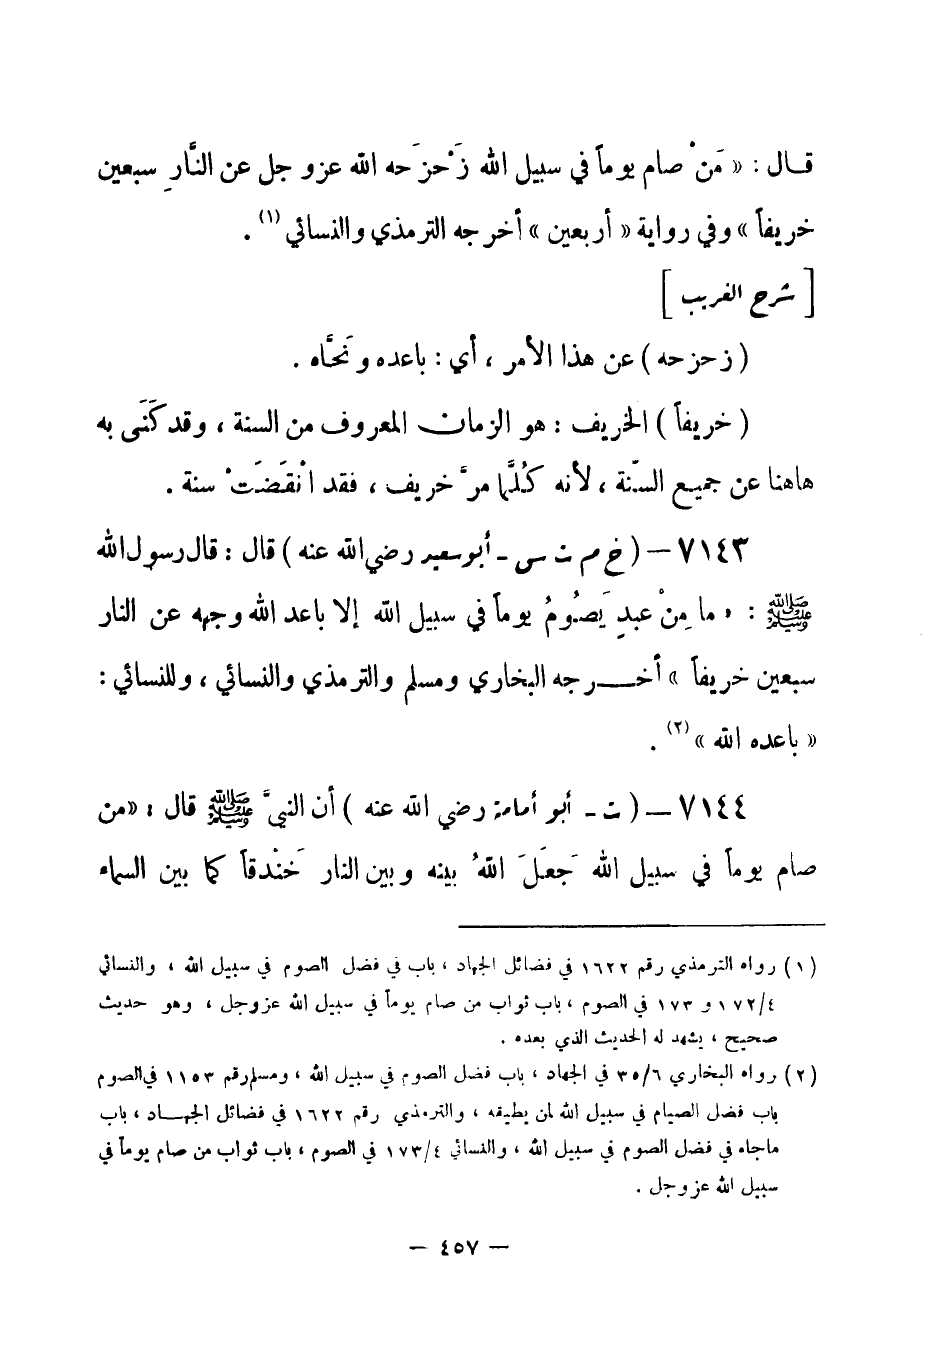 قال : « مَنْ صام يوماً في سبيل الله زَحْزَحه الله عزوجل عن النَّارِ سبعين
خريفاً » وفي رواية « أربعين » أخرجه الترمذي والنسائي (١) .
[ شرح الغريب ]
( زحزحه ) عن هذا الأمر ، أي : باعده ونَحَّاه .
( خريفاً ) الخريف : هو الزمان المعروف من السنة ، وقد كَنَى به
هاهنا عن جميع السَّنة ، لأنه كُلَّما مرَّ خريف ، فقد انْقَضَتْ سنة .
٧١٤٣ – ( خ م ت س - أبو سعيد رضي الله عنه ) قال : قال رسول الله
ﷺ : « ما مِنْ عبدٍ يَصُومُ يوماً في سبيل الله إلا باعد الله وجهه عن النار
سبعين خريفاً » أخرجه البخاري ومسلم والترمذي والنسائي ، وللنسائي :
« باعده الله » (٢) .
٧١٤٤ – ( ت - أبو أمامة رضي الله عنه ) أن النبيَّ ﷺ قال : « من
صام يوماً في سبيل الله جَعَلَ اللهُ بينه وبين النار خَنْدقاً كما بين السماء
(١) رواه الترمذي رقم ١٦٢٢ في فضائل الجهاد ، باب في فضل الصوم في سبيل الله ، والنسائي
١٧٢/٤ و ١٧٣ في الصوم ، باب ثواب من صام يوماً في سبيل الله عزوجل ، وهو حديث
صحيح ، يشهد له الحديث الذي بعده .
(٢) رواه البخاري ٣٥/٦ في الجهاد ، باب فضل الصوم في سبيل الله ، ومسلم رقم ١١٥٣ في الصوم
باب فضل الصيام في سبيل الله لمن يطيقه ، والترمذي رقم ١٦٢٢ في فضائل الجهاد ، باب
ماجاء في فضل الصوم في سبيل الله ، والنسائي ١٧٣/٤ في الصوم ، باب ثواب من صام يوماً في
سبيل الله عزوجل .
– ٤٥٧ –